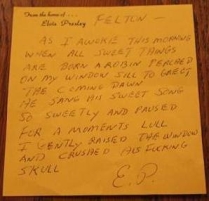 From the home of ...
Elvis Presley
FELTON —
AS I AWOKE THIS MORNING
WHEN ALL SWEET THINGS
ARE BORN A ROBIN PERCHED
ON MY WINDOW SILL TO GREET
THE COMING DAWN
HE SANG HIS SWEET SONG
SO SWEETLY AND PAUSED
FOR A MOMENTS LULL
I GENTLY RAISED THE WINDOW
AND CRUSHED HIS FUCKING
SKULL
E.P.